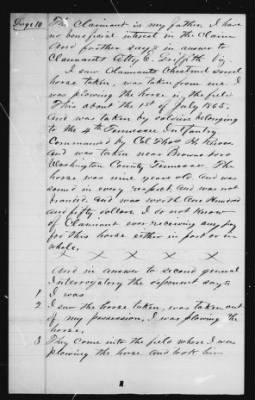 Page 10
The Claimant is my father, I have
no beneficial interest in the Claim
And further says in answer to
Claimants Atty C. Griffith Esq.
I saw Claimants Chestnut sorrel
horse, taken, was taken from me. I
was plowing the horse in the field
This about the 1st of July 1865.
And was taken by soldiers belonging
to the 4th Tennessee Infantry
Commanded by Col Thos H.
and was taken near
Washington County Tennessee. The
horse was nine years old and was
sound in every respect, and was not
branded. And was worth One Hundred
and fifty dollars I do not know
of Claimant ever receiving any pay
for this horse either in part or in
whole.
X X X X
And in answer to second general
Interrogatory the deponent says
1 I was
2 I saw the horse taken, was taken out
of my possession, I was plowing the
horse.
3 They come into the field where I was
plowing the horse and took him